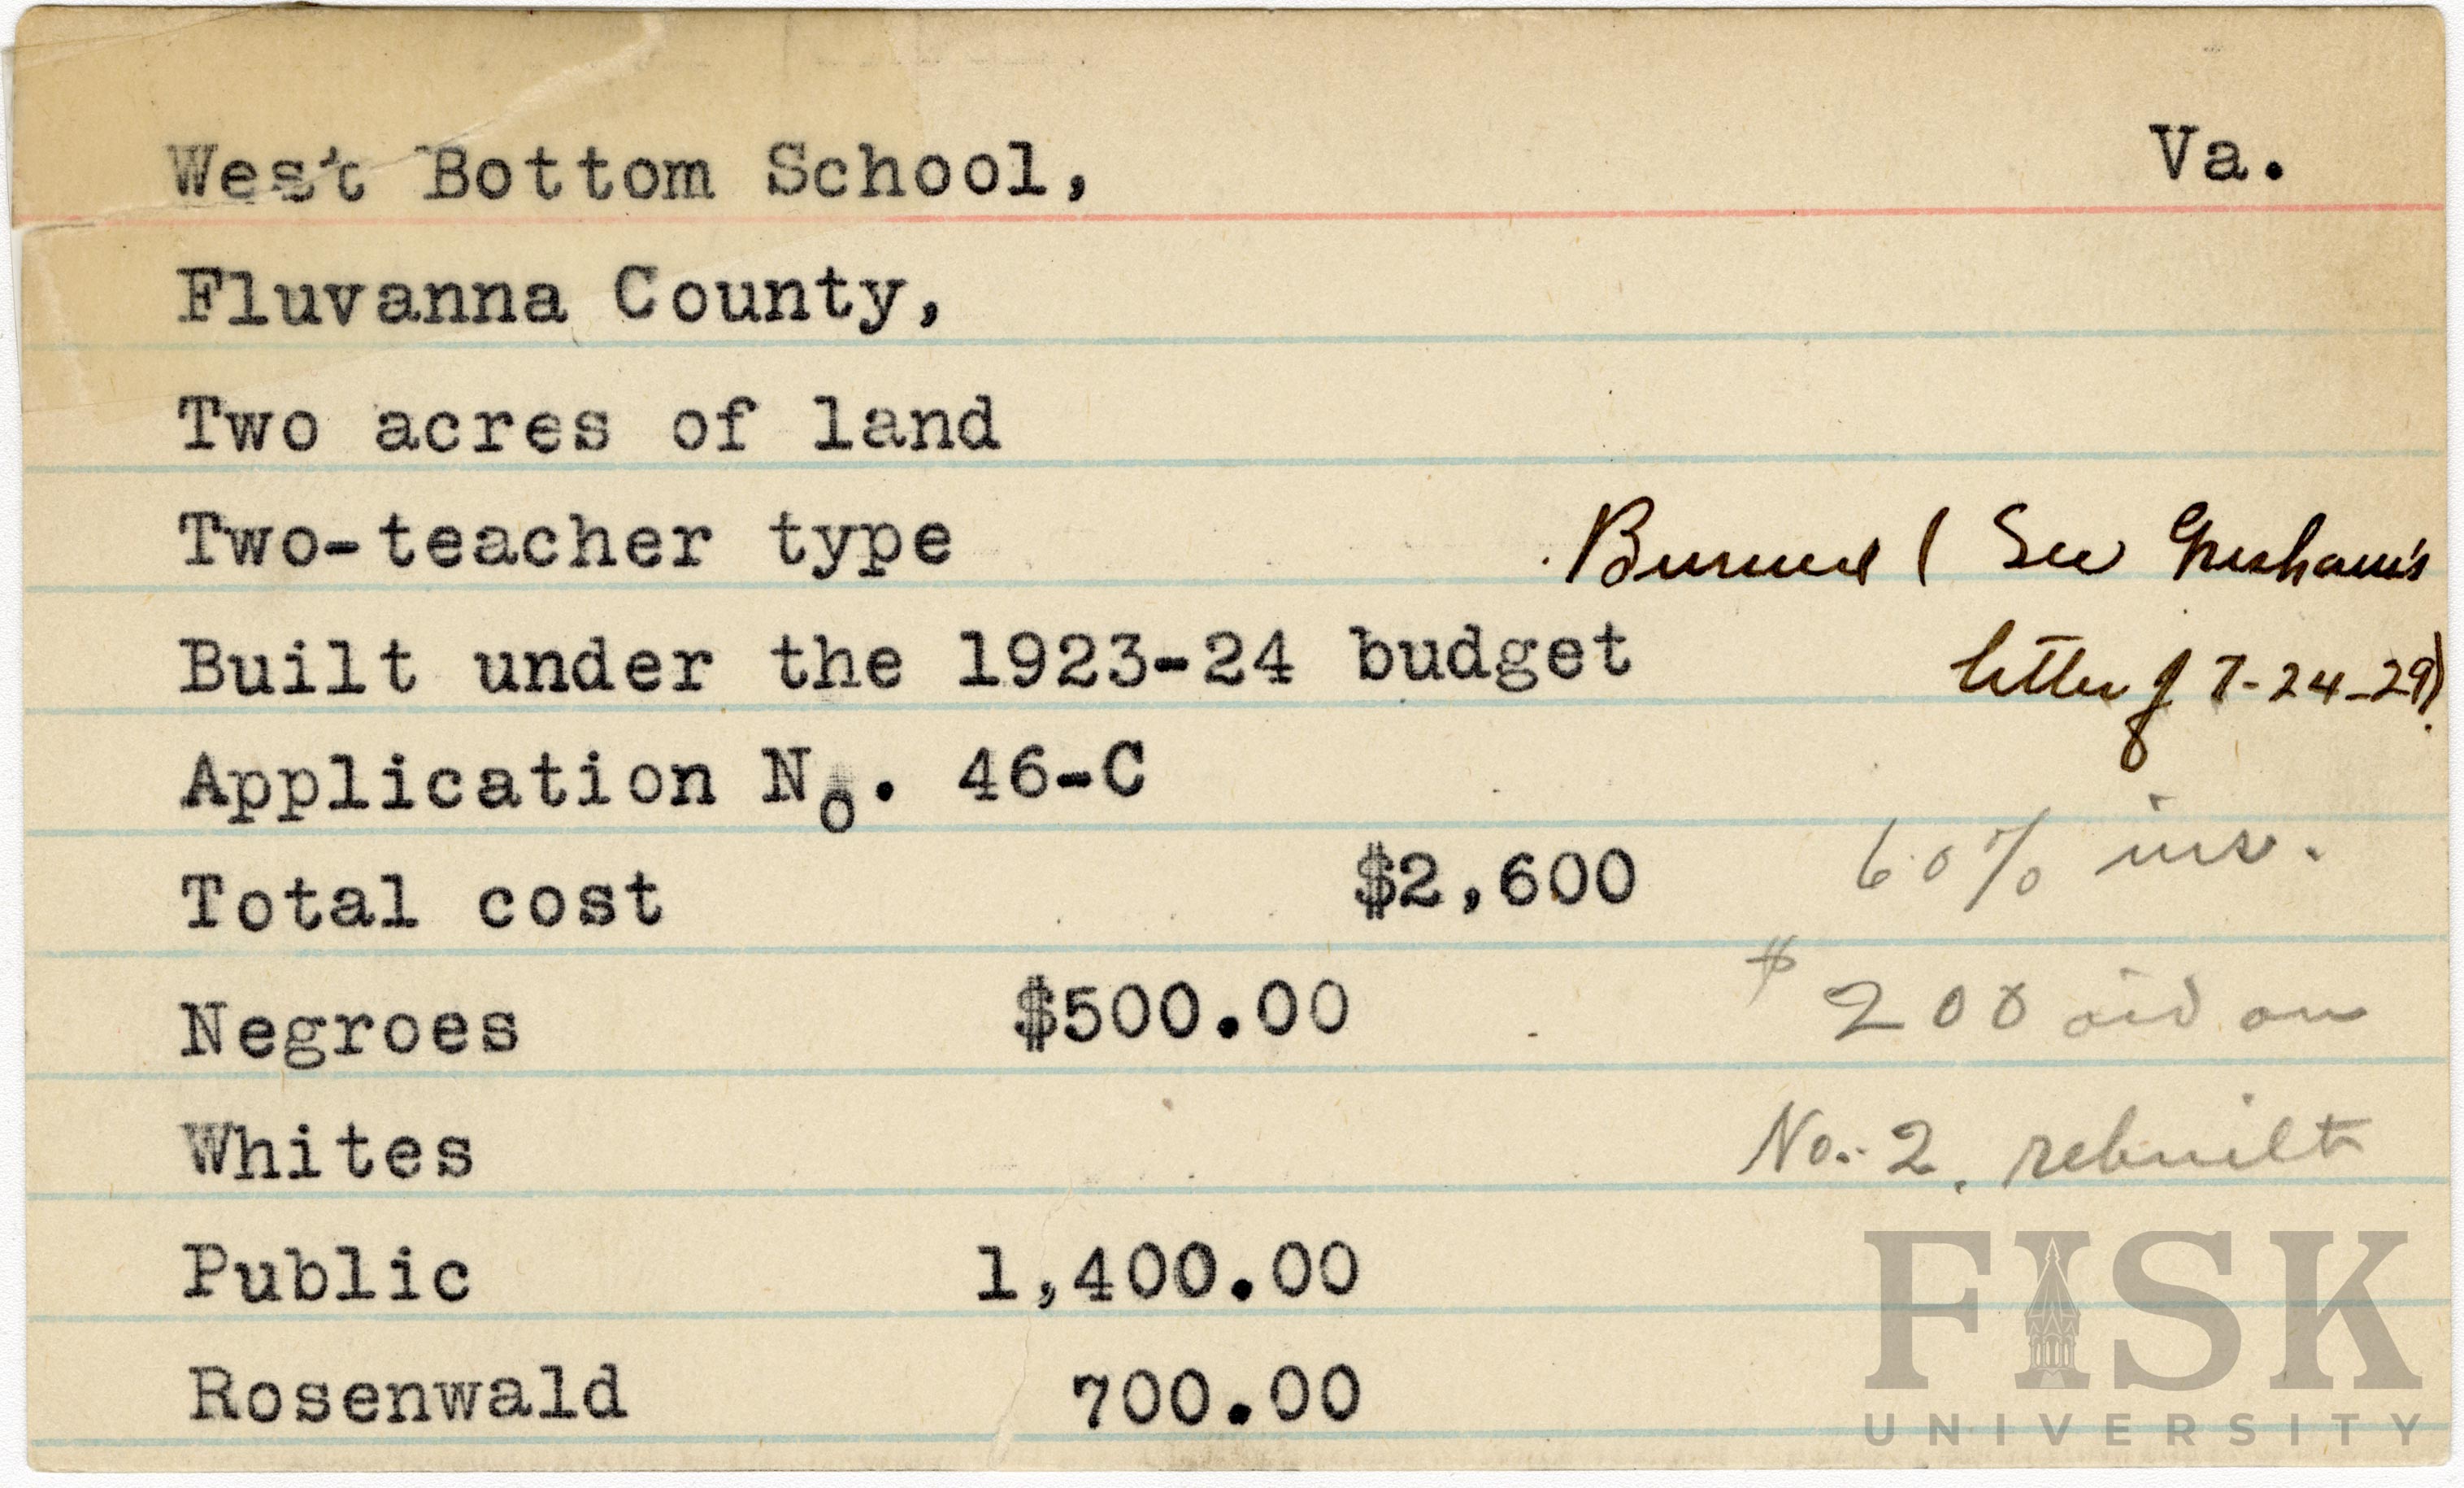 West Bottom School, Va.
Fluvanna County,
Two acres of land
Two-teacher type
Burned (See Gresham's
Built under the 1923-24 budget
letter of 7-24-29).
Application No. 46-C
Total cost $2,600
60% ins.
Negroes $500.00
$200 aid on
Whites
No. 2, rebuilt
Public 1,400.00
Rosenwald 700.00
FISK
UNIVERSITY